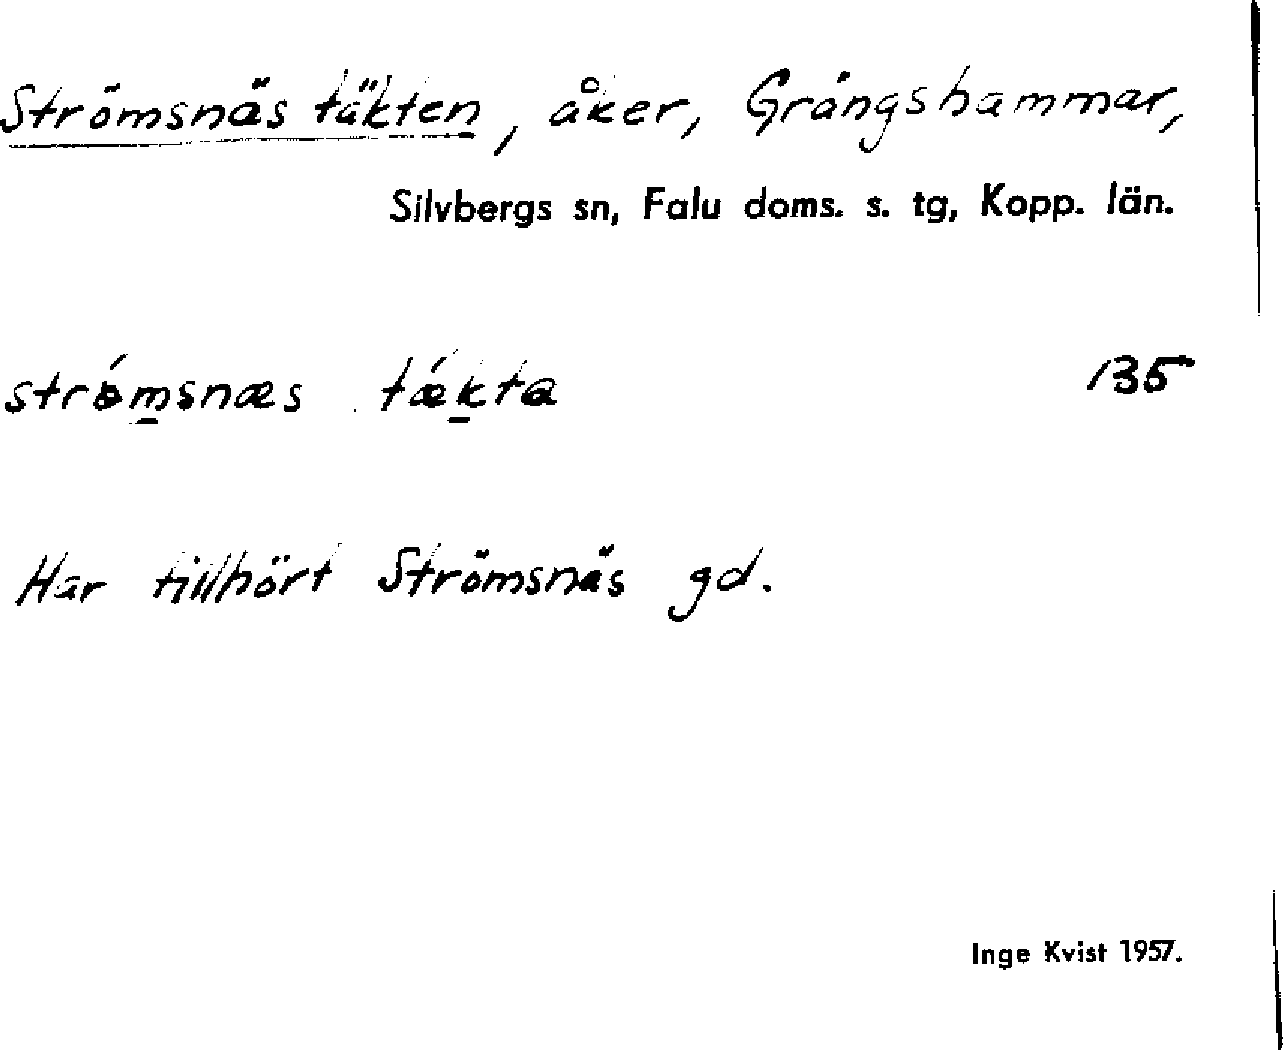 Strömsnäs täkten, åker, Grängshammar,
Silvbergs sn, Falu doms. s. tg, Kopp. län.
strǿmsnæs tǽkta 135
Har tillhört Strömsnäs gd.
Inge Kvist 1957.